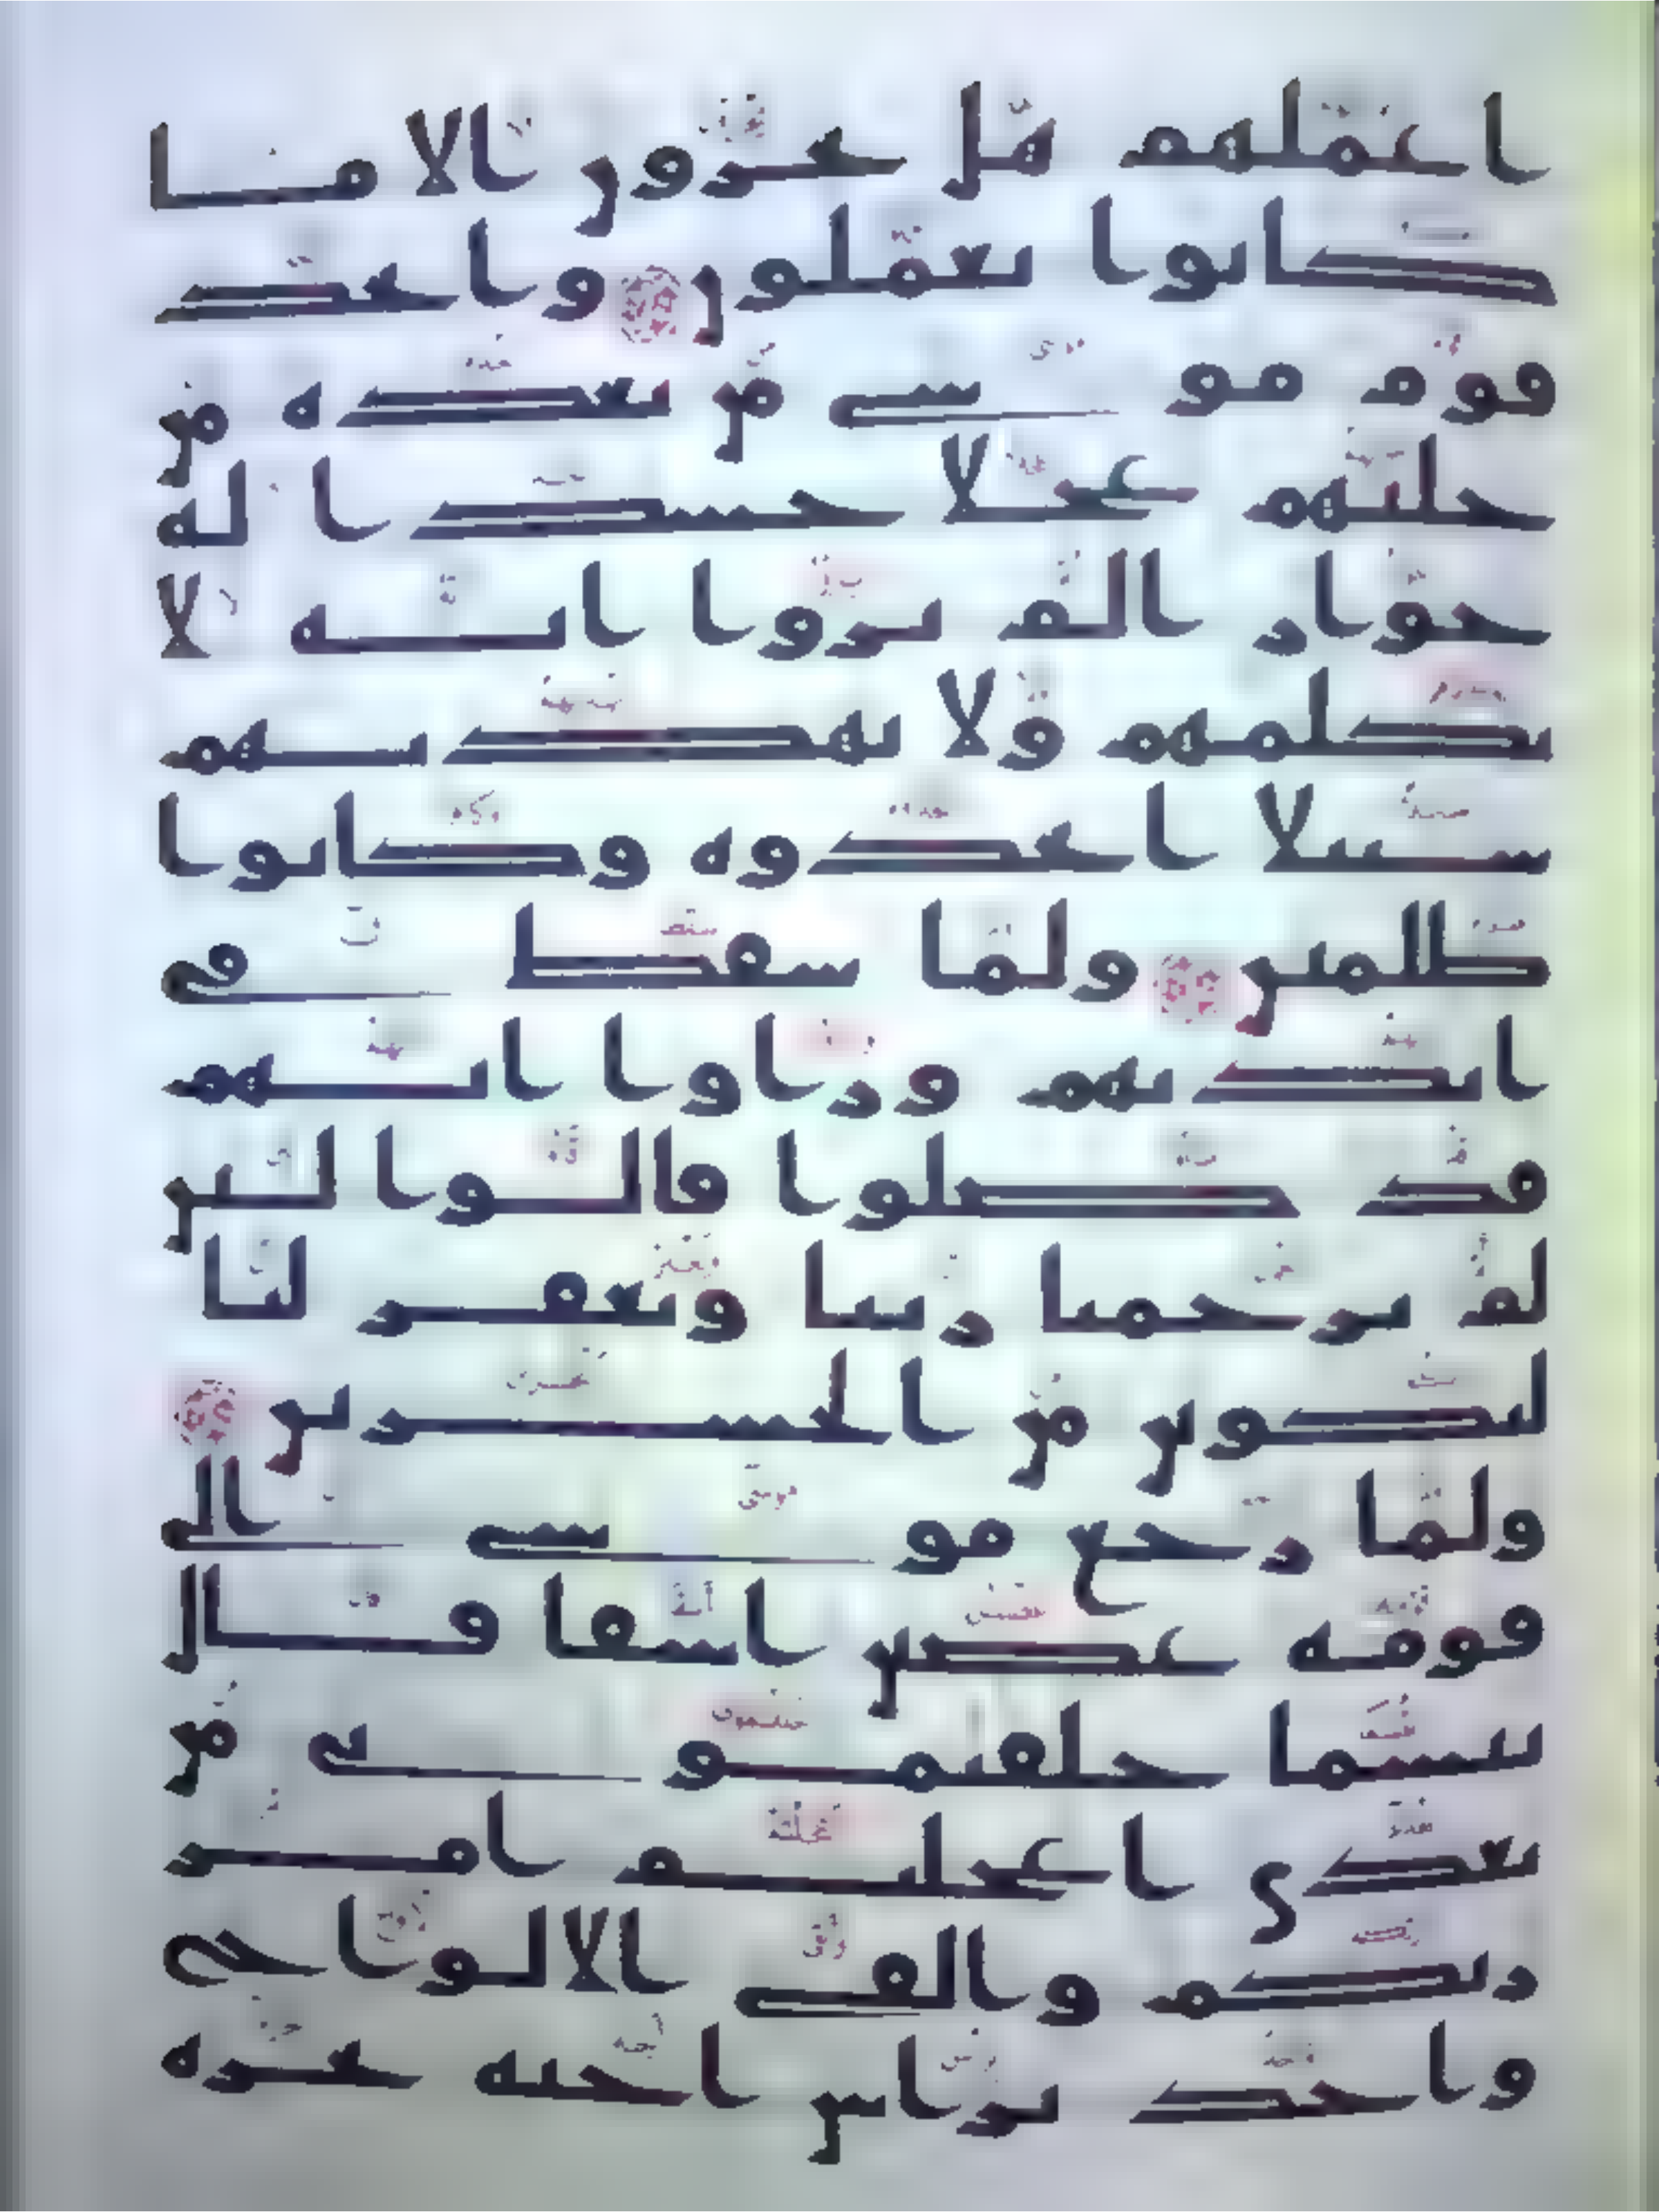 اعملهم هل يجزون الا ما
كانوا يعملون واتخذ
قوم موسى من بعده من
حليهم عجلا جسدا له
خوار الم يروا انه لا
يكلمهم ولا يهديهم
سبيلا اتخذوه وكانوا
ظلمين ولما سقط في
ايديهم وراوا انهم
قد ضلوا قالوا لئن
لم يرحمنا ربنا ويغفر لنا
لنكونن من الخسرين
ولما رجع موسى الى
قومه غضبن اسفا قال
بئسما خلفتموني من
بعدي اعجلتم امر
ربكم والقى الالواح
واخذ براس اخيه يجره